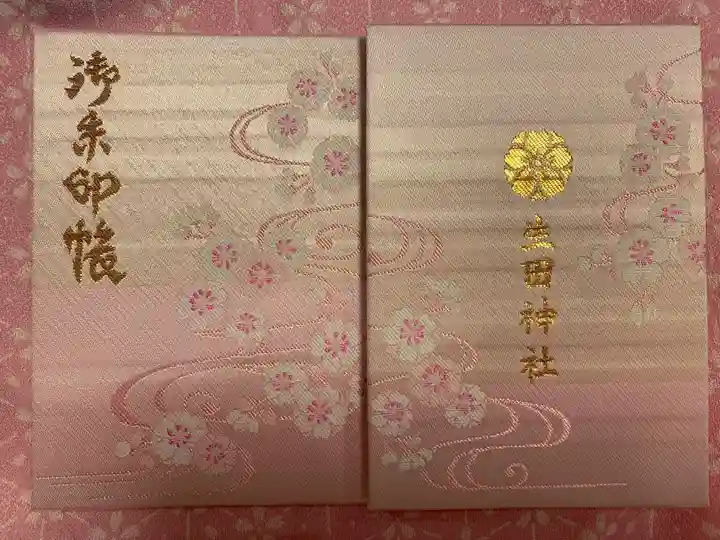 御朱印帳
生田神社